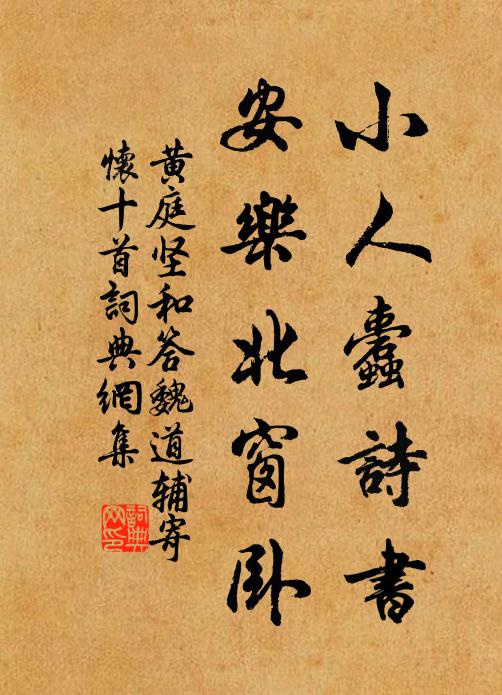 小人蠹詩書
安樂北窗卧
黄庭坚和答魏道辅寄
懷十首詞典網集
詞典網印